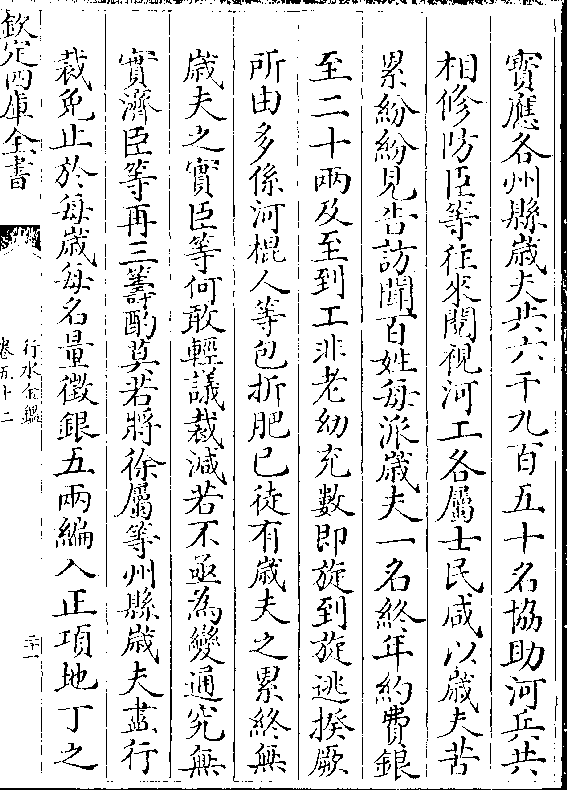 寳應各州縣歲夫共六千九百五十名協助河兵共
相修防臣等往來閱視河工各屬士民咸以歲夫苦
累紛紛見告訪聞百姓每派歲夫一名終年約費銀
至二十兩及至到工非老幼充數即旋到旋逃揆厥
所由多係河棍人等包折肥已徒有歲夫之累終無
歲夫之實臣等何敢輕議裁減若不亟為變通究無
實濟臣等再三籌酌莫若將徐屬等州縣歲夫盡行
裁免止於每歲每名量徵銀五兩編入正項地丁之
欽定四庫全書
行水金鑑
卷五十二
三十一